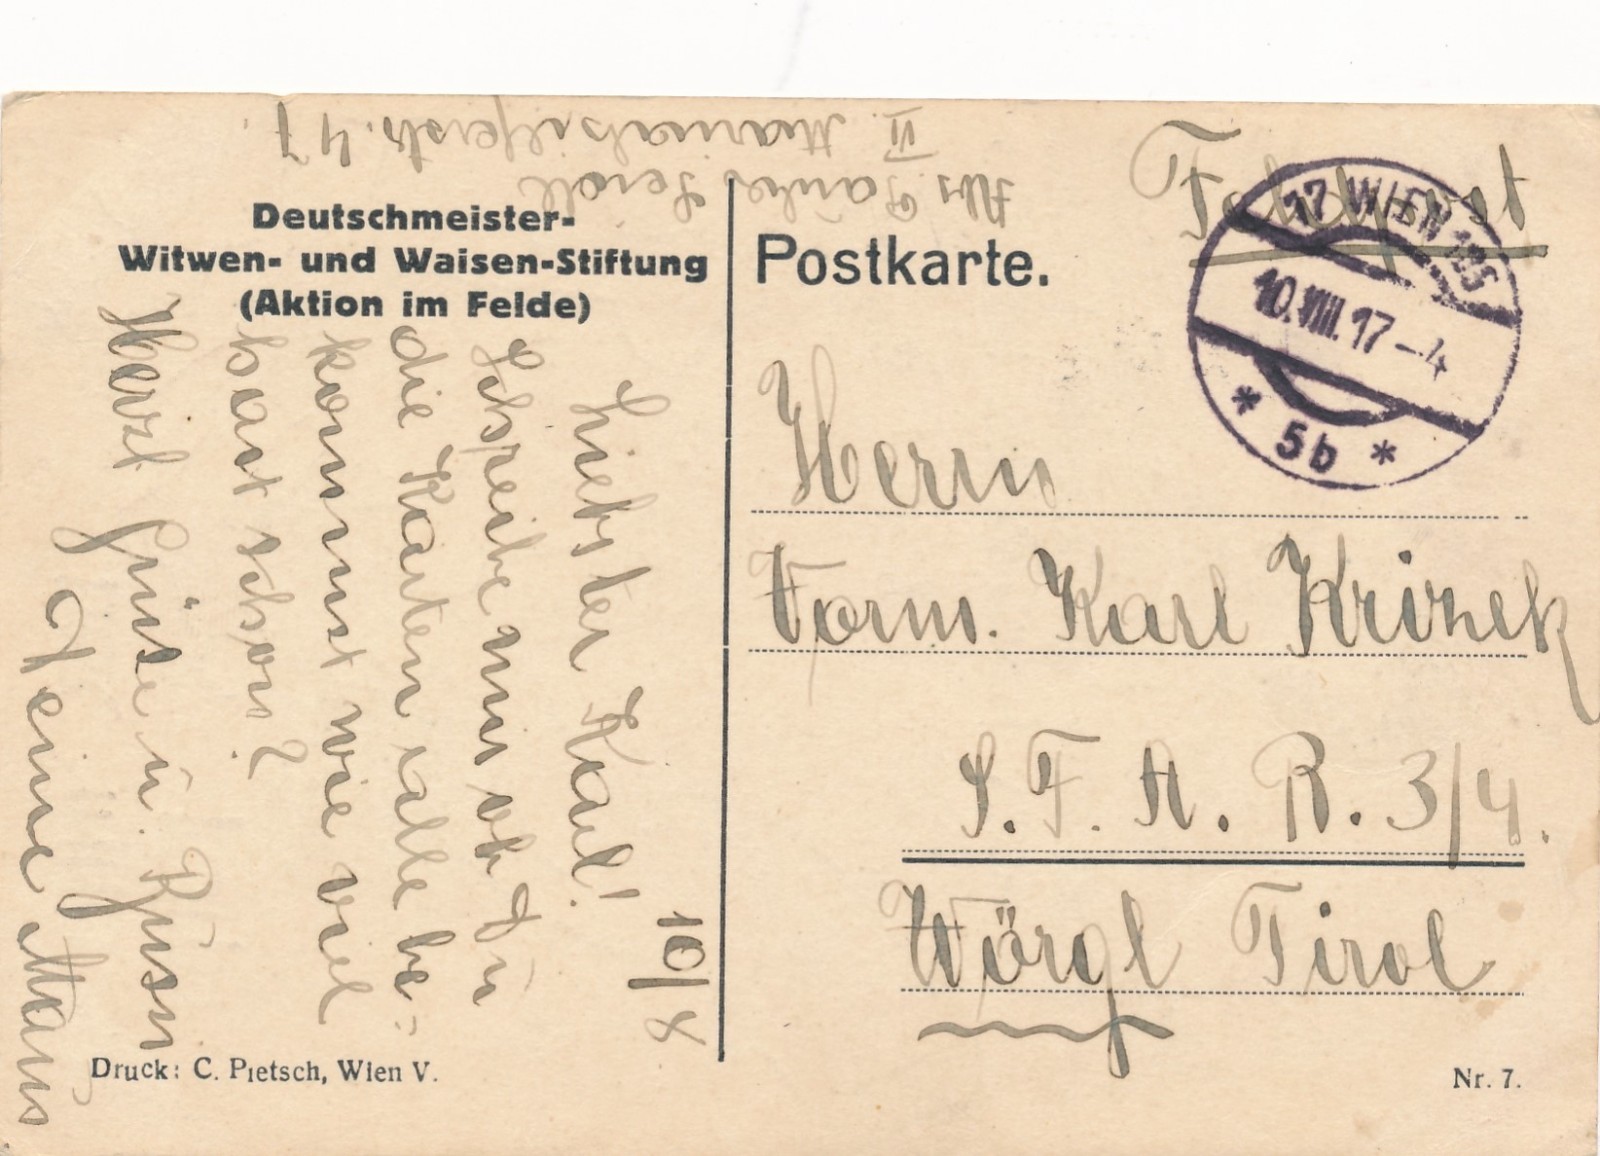 Abs. Paula Seidl
VI. Mariahilferstr. 47.
Feldpost
Deutschmeister-
Witwen- und Waisen-Stiftung
(Aktion im Felde)
Postkarte.
17 WIEN 135
10.VIII.17-4
* 5b *
10/8
Liebster Karl!
Schreibe mir ob Du
die Karten alle be-
kommst wie viel
hast schon?
Herzl Grüsse u.
Deine
Herrn
Form. Karl Krizek
S. F. A. R. 3/4.
Wörgl Tirol
Druck: C. Pietsch, Wien V.
Nr. 7.